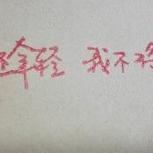 还年轻 我不